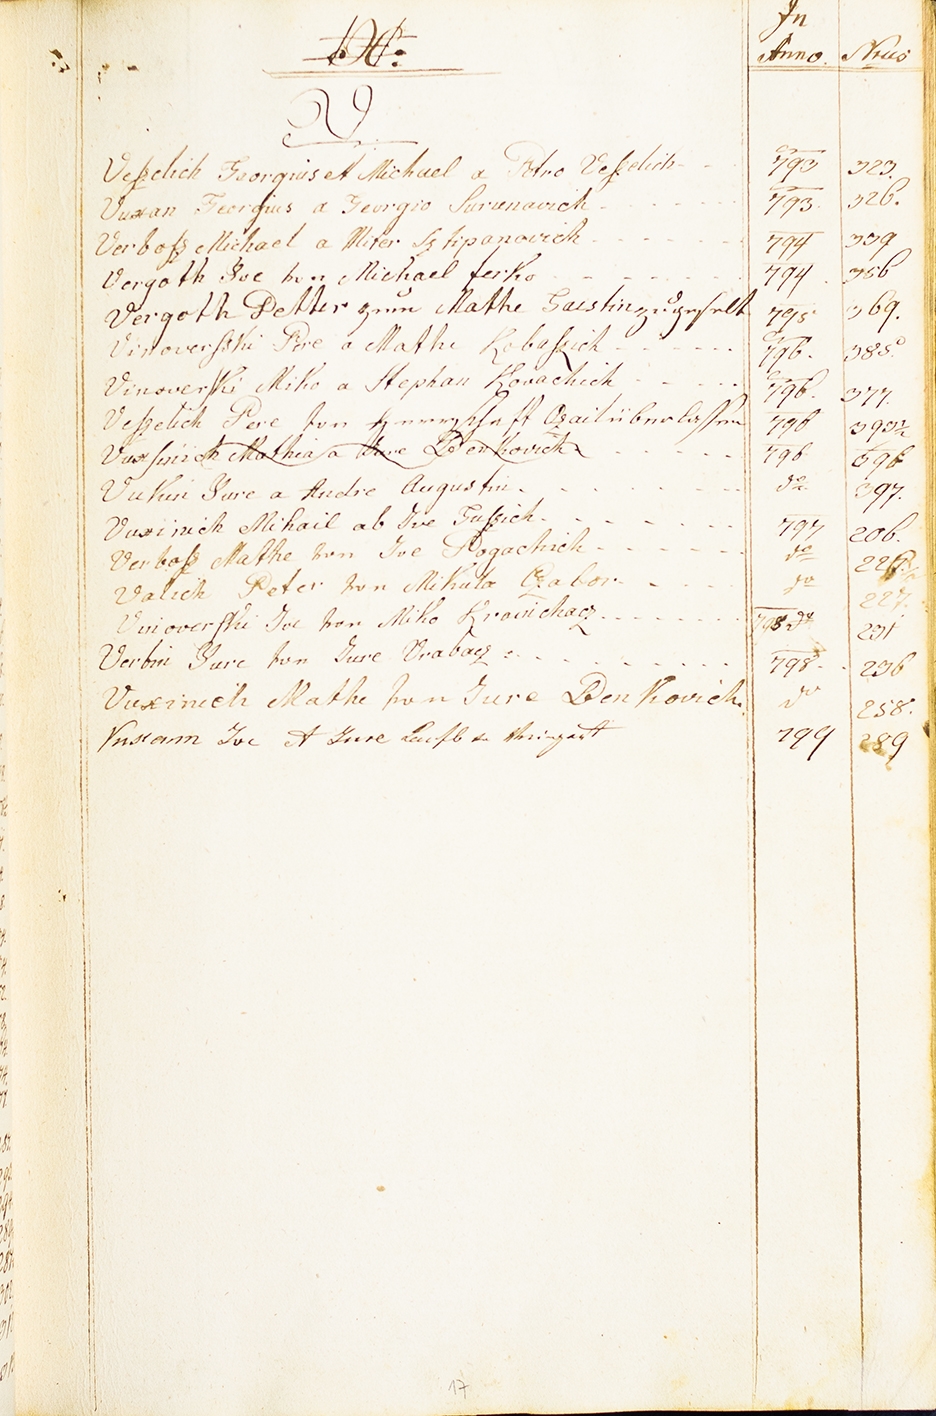 In
Anno. Nrus
V
Veſzelich Georgius et Michael a Petro Veſzelich 793 323.
Vuxan Georgius a Georgio Surunavich 793. 326.
Verboſz Michael a Miter Sztipanovich 794 339
Vergoth Ive von Michael ferko 794 356
Vergoth Petter zum Mathe Gustin zugeselt 795 369.
Vinoverſzki Pere a Mathe Kobaſzich 796. 385.
Vinoverſki Miko a Stephan Kovachich 796. 377.
Veſzelich Pere von Herrschaft Ozail überlassen 796 393½
Vuxſinich Mathia a Jure Benkovich 796 596
Vukin Jure a Andre Augustin. do 397.
Vuxinich Mihail ab Ive Guſzich. 797 206.
Verboſz Mathe von Ive Rogachich do
Valich Peter von Mikula Czabor. do 227.
Vinoverſki Ive von Miko Krainchacz 798 do 231
Verbin Jure von Jure Vrabacz 798. 236
Vuxinich Mathe von Jure Benkovich. do 258.
Vuxann Ive et Jure 799 289
17